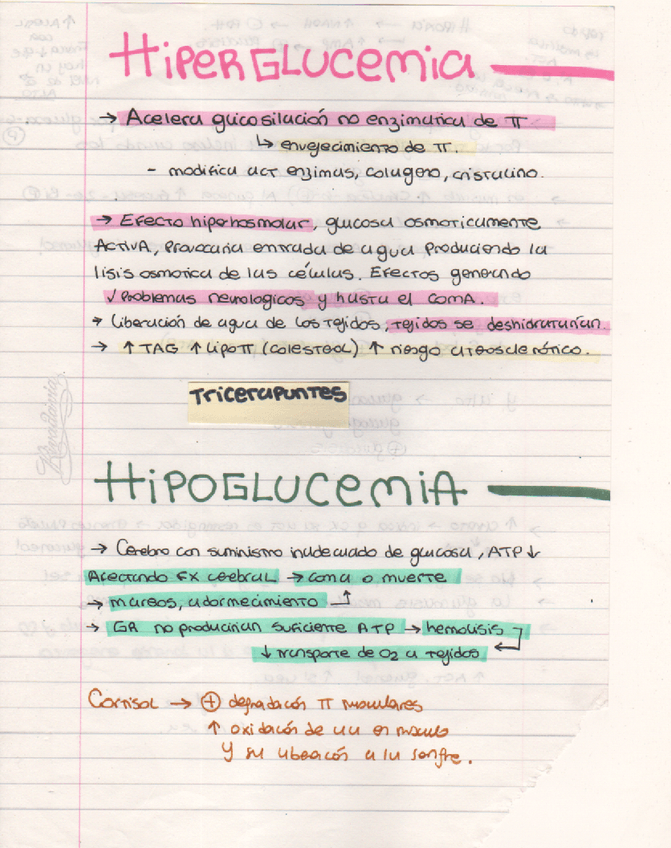 HIPERGLUCEMIA
→ Acelera glucosilación no enzimatica de π
↳ envejecimiento de π.
- modifica act enzimas, colageno, cristalino.
→ Efecto hiperhosmolar, glucosa osmoticamente
ACTIVA, Provocaria entrada de agua produciendo la
lisis osmotica de las células. Efectos generando
✓ Problemas neurologicos y hasta el coma.
→ Liberación de agua de los tejidos, tejidos se deshidratarian.
→ ↑ TAG ↑ Lipoπ (colesteol) ↑ riesgo ateosclerótico.
Tricerapuntes
HIPOGLUCEMIA
→ Cerebro con suminismo inadecuado de glucosa, ATP ↓
Afectando FX cerebral → coma o muerte
→ mareos, adormecimiento
→ GR no producirian suficiente ATP → hemolisis
↓ transporte de O2 a tejidos
Cortisol → ⊕ degradación π musculares
↑ oxidación de aa en musculo
Y su liberación a la sangre.